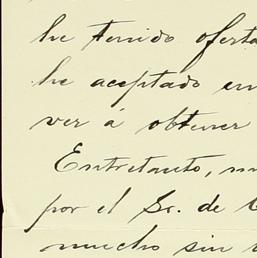 he tenido oferta
he aceptado en
ver á obtener
Entretanto, m
por el Sr. de
mucho sin